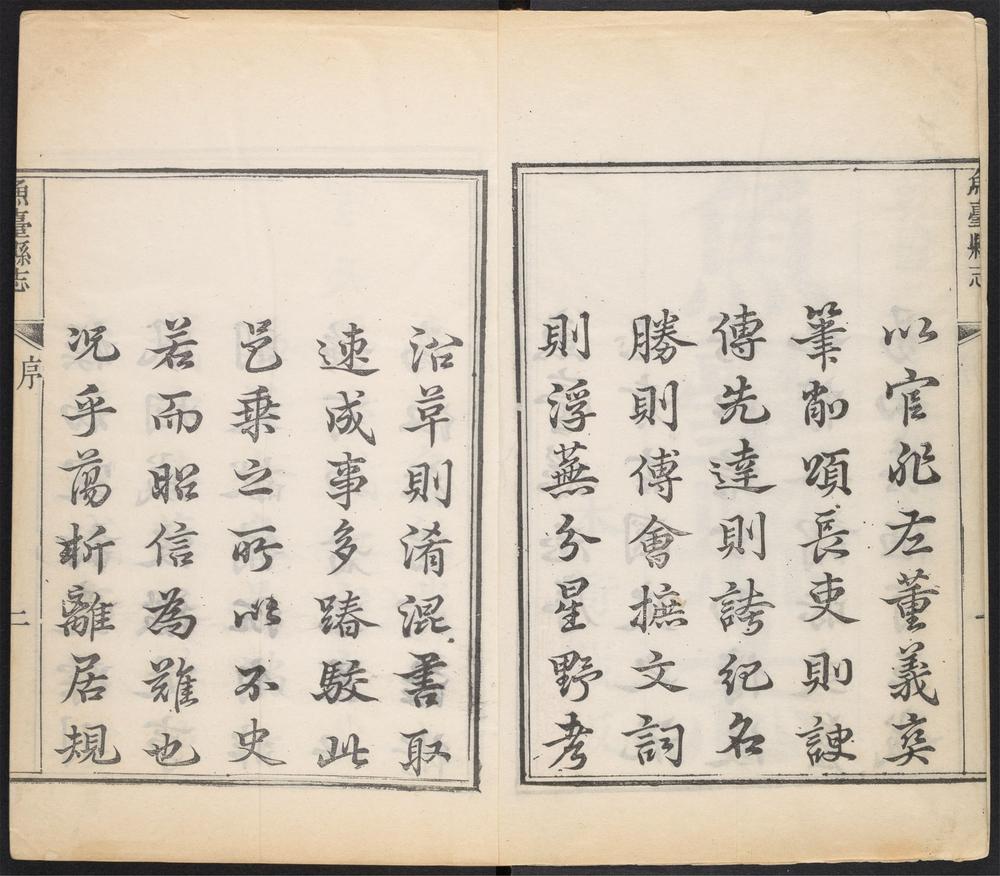 魚臺縣志
以官非左董義爽
筆削頌長吏則諛
傳先達則誇紀名
勝則傅會摭文詞
則浮蕪分星野考
沿革則淆混書取
速成事多踳駮此
邑乗之所以不史
若而昭信為難也
况乎蕩析離居規
魚臺縣志
序
二